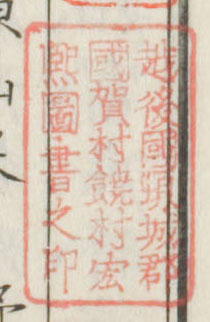 越後國頸城郡
國賀村饒村宏
熈圖書之印